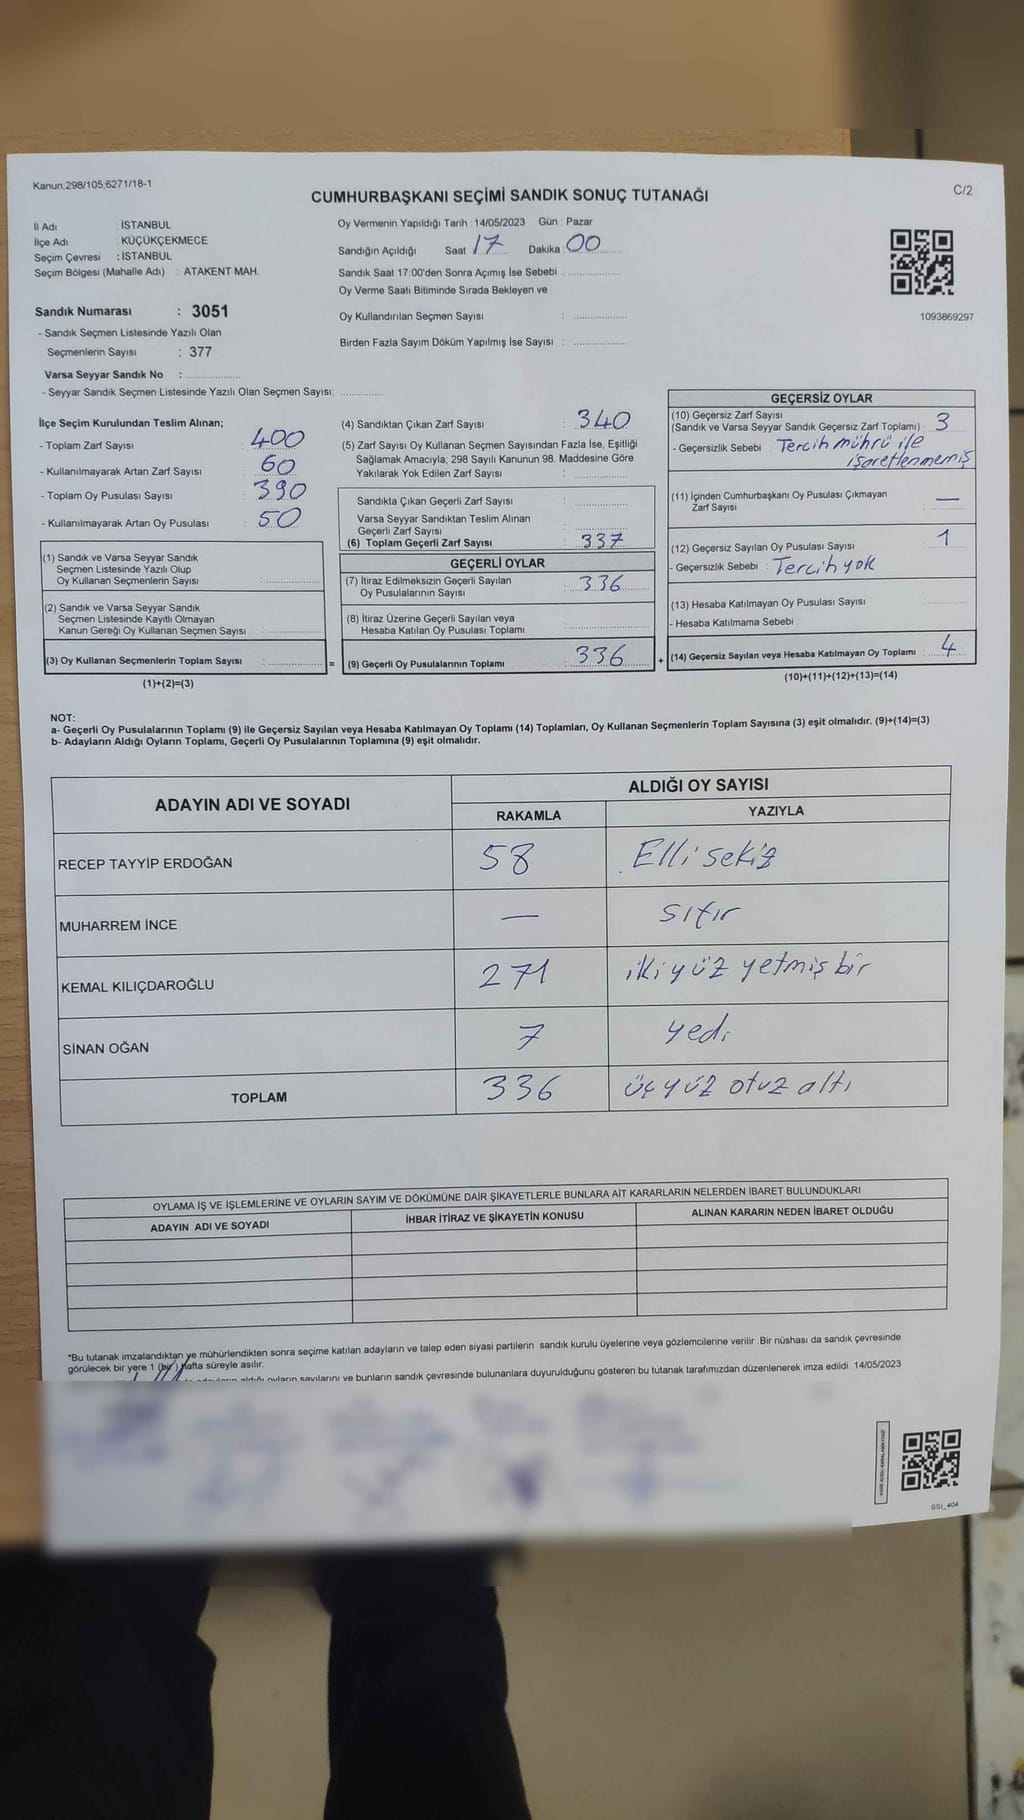 Kanun;298/105;6271/18-1
C/2
CUMHURBAŞKANI SEÇİMİ SANDIK SONUÇ TUTANAĞI
İl Adı : İSTANBUL
İlçe Adı : KÜÇÜKÇEKMECE
Seçim Çevresi : İSTANBUL
Seçim Bölgesi (Mahalle Adı) : ATAKENT MAH.
Oy Vermenin Yapıldığı Tarih : 14/05/2023 Gün : Pazar
Sandığın Açıldığı Saat 17 Dakika 00
Sandık Saat 17:00'den Sonra Açımış İse Sebebi :
Oy Verme Saati Bitiminde Sırada Bekleyen ve
Oy Kullandırılan Seçmen Sayısı :
Birden Fazla Sayım Döküm Yapılmış İse Sayısı :
1093869297
Sandık Numarası : 3051
- Sandık Seçmen Listesinde Yazılı Olan
Seçmenlerin Sayısı : 377
Varsa Seyyar Sandık No :
- Seyyar Sandık Seçmen Listesinde Yazılı Olan Seçmen Sayısı:
İlçe Seçim Kurulundan Teslim Alınan;
- Toplam Zarf Sayısı : 400
- Kullanılmayarak Artan Zarf Sayısı : 60
- Toplam Oy Pusulası Sayısı : 390
- Kullanılmayarak Artan Oy Pusulası : 50
(1) Sandık ve Varsa Seyyar Sandık
Seçmen Listesinde Yazılı Olup
Oy Kullanan Seçmenlerin Sayısı :
(2) Sandık ve Varsa Seyyar Sandık
Seçmen Listesinde Kayıtlı Olmayan
Kanun Gereği Oy Kullanan Seçmen Sayısı :
(3) Oy Kullanan Seçmenlerin Toplam Sayısı :
=
(1)+(2)=(3)
(4) Sandıktan Çıkan Zarf Sayısı : 340
(5) Zarf Sayısı Oy Kullanan Seçmen Sayısından Fazla İse, Eşitliği
Sağlamak Amacıyla; 298 Sayılı Kanunun 98. Maddesine Göre
Yakılarak Yok Edilen Zarf Sayısı :
Sandıkta Çıkan Geçerli Zarf Sayısı :
Varsa Seyyar Sandıktan Teslim Alınan
Geçerli Zarf Sayısı :
(6) Toplam Geçerli Zarf Sayısı : 337
GEÇERLİ OYLAR
(7) İtiraz Edilmeksizin Geçerli Sayılan
Oy Pusulalarının Sayısı : 336
(8) İtiraz Üzerine Geçerli Sayılan veya
Hesaba Katılan Oy Pusulası Toplamı :
(9) Geçerli Oy Pusulalarının Toplamı : 336
+
GEÇERSİZ OYLAR
(10) Geçersiz Zarf Sayısı
(Sandık ve Varsa Seyyar Sandık Geçersiz Zarf Toplamı) : 3
- Geçersizlik Sebebi : Tercih mührü ile
işaretlenmemiş
(11) İçinden Cumhurbaşkanı Oy Pusulası Çıkmayan
Zarf Sayısı : —
(12) Geçersiz Sayılan Oy Pusulası Sayısı : 1
- Geçersizlik Sebebi : Tercih yok
(13) Hesaba Katılmayan Oy Pusulası Sayısı :
- Hesaba Katılmama Sebebi :
(14) Geçersiz Sayılan veya Hesaba Katılmayan Oy Toplamı : 4
(10)+(11)+(12)+(13)=(14)
NOT:
a- Geçerli Oy Pusulalarının Toplamı (9) ile Geçersiz Sayılan veya Hesaba Katılmayan Oy Toplamı (14) Toplamları, Oy Kullanan Seçmenlerin Toplam Sayısına (3) eşit olmalıdır. (9)+(14)=(3)
b- Adayların Aldığı Oyların Toplamı, Geçerli Oy Pusulalarının Toplamına (9) eşit olmalıdır.
ADAYIN ADI VE SOYADI
ALDIĞI OY SAYISI
RAKAMLA YAZIYLA
RECEP TAYYİP ERDOĞAN 58 Elli sekiz
MUHARREM İNCE — sıfır
KEMAL KILIÇDAROĞLU 271 iki yüz yetmiş bir
SİNAN OĞAN 7 yedi
TOPLAM 336 üç yüz otuz altı
OYLAMA İŞ VE İŞLEMLERİNE VE OYLARIN SAYIM VE DÖKÜMÜNE DAİR ŞİKAYETLERLE BUNLARA AİT KARARLARIN NELERDEN İBARET BULUNDUKLARI
ADAYIN ADI VE SOYADI İHBAR İTİRAZ VE ŞİKAYETİN KONUSU ALINAN KARARIN NEDEN İBARET OLDUĞU
*Bu tutanak imzalandıktan ve mühürlendikten sonra seçime katılan adayların ve talep eden siyasi partilerin sandık kurulu üyelerine veya gözlemcilerine verilir .Bir nüshası da sandık çevresinde
görülecek bir yere 1 (bir) hafta süreyle asılır.
aldığı oyların sayılarını ve bunların sandık çevresinde bulunanlara duyurulduğunu gösteren bu tutanak tarafımızdan düzenlenerek imza edildi. 14/05/2023
SSI_404